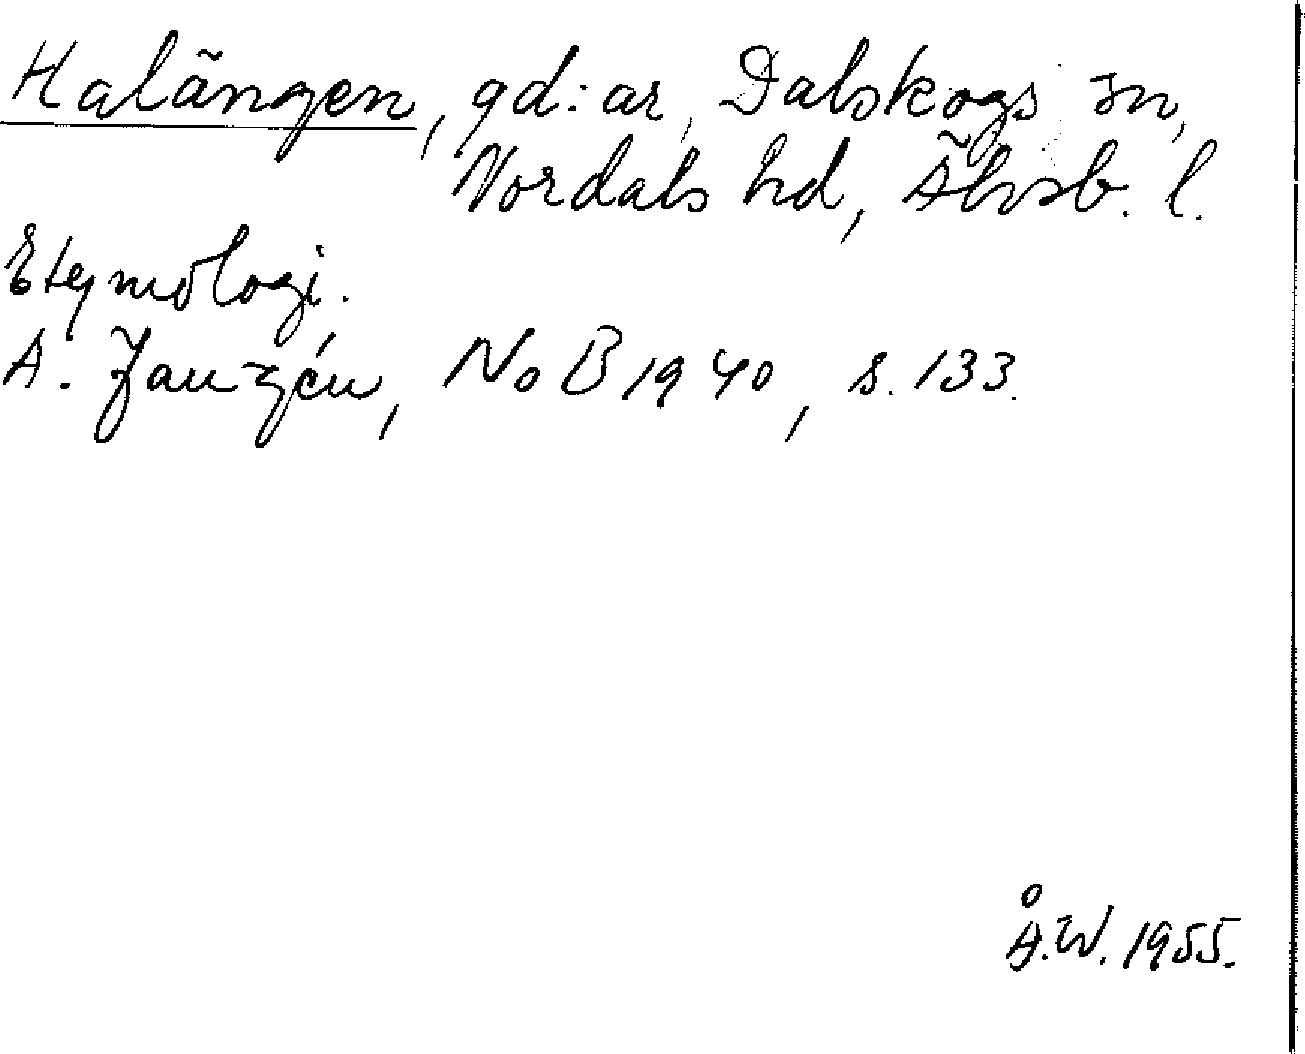 Halängen, gd:ar, Dalskogs sn,
Nordals hd, Älvsb. l.
Etymologi.
A. Janzén, NoB 1940, s. 133.
Å.W. 1955.